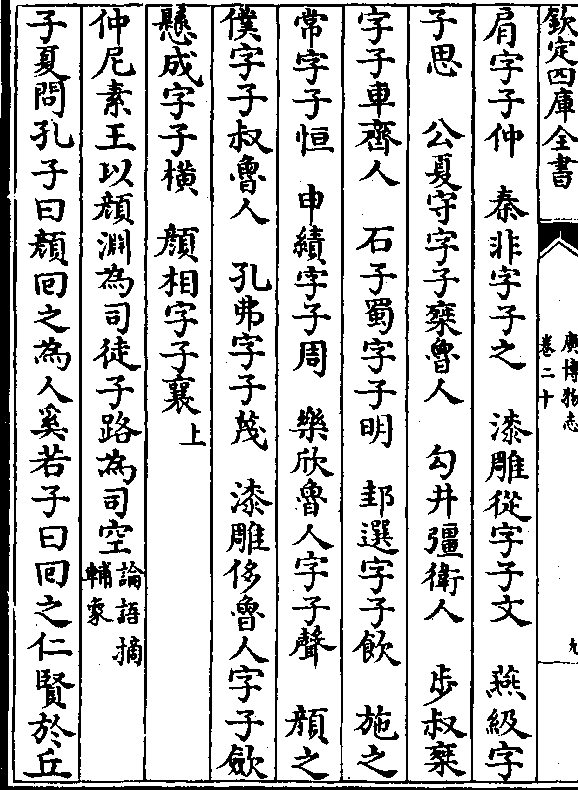 欽定四庫全書
廣博物志
卷二十
九
肩字子仲　秦非字子之　漆雕從字子文　燕級字
子思　公夏守字子椉魯人　勾井彊衛人　步叔椉
字子車齊人　石子蜀字子明　邽選字子飲　施之
常字子恒　申績字子周　樂欣魯人字子聲　顔之
僕字子叔魯人　孔弗字子茂　漆雕侈魯人字子斂
懸成字子橫　顔相字子襄上
仲尼素王以顔淵為司徒子路為司空論語摘輔象
子夏問孔子曰顔回之為人奚若子曰回之仁賢於丘